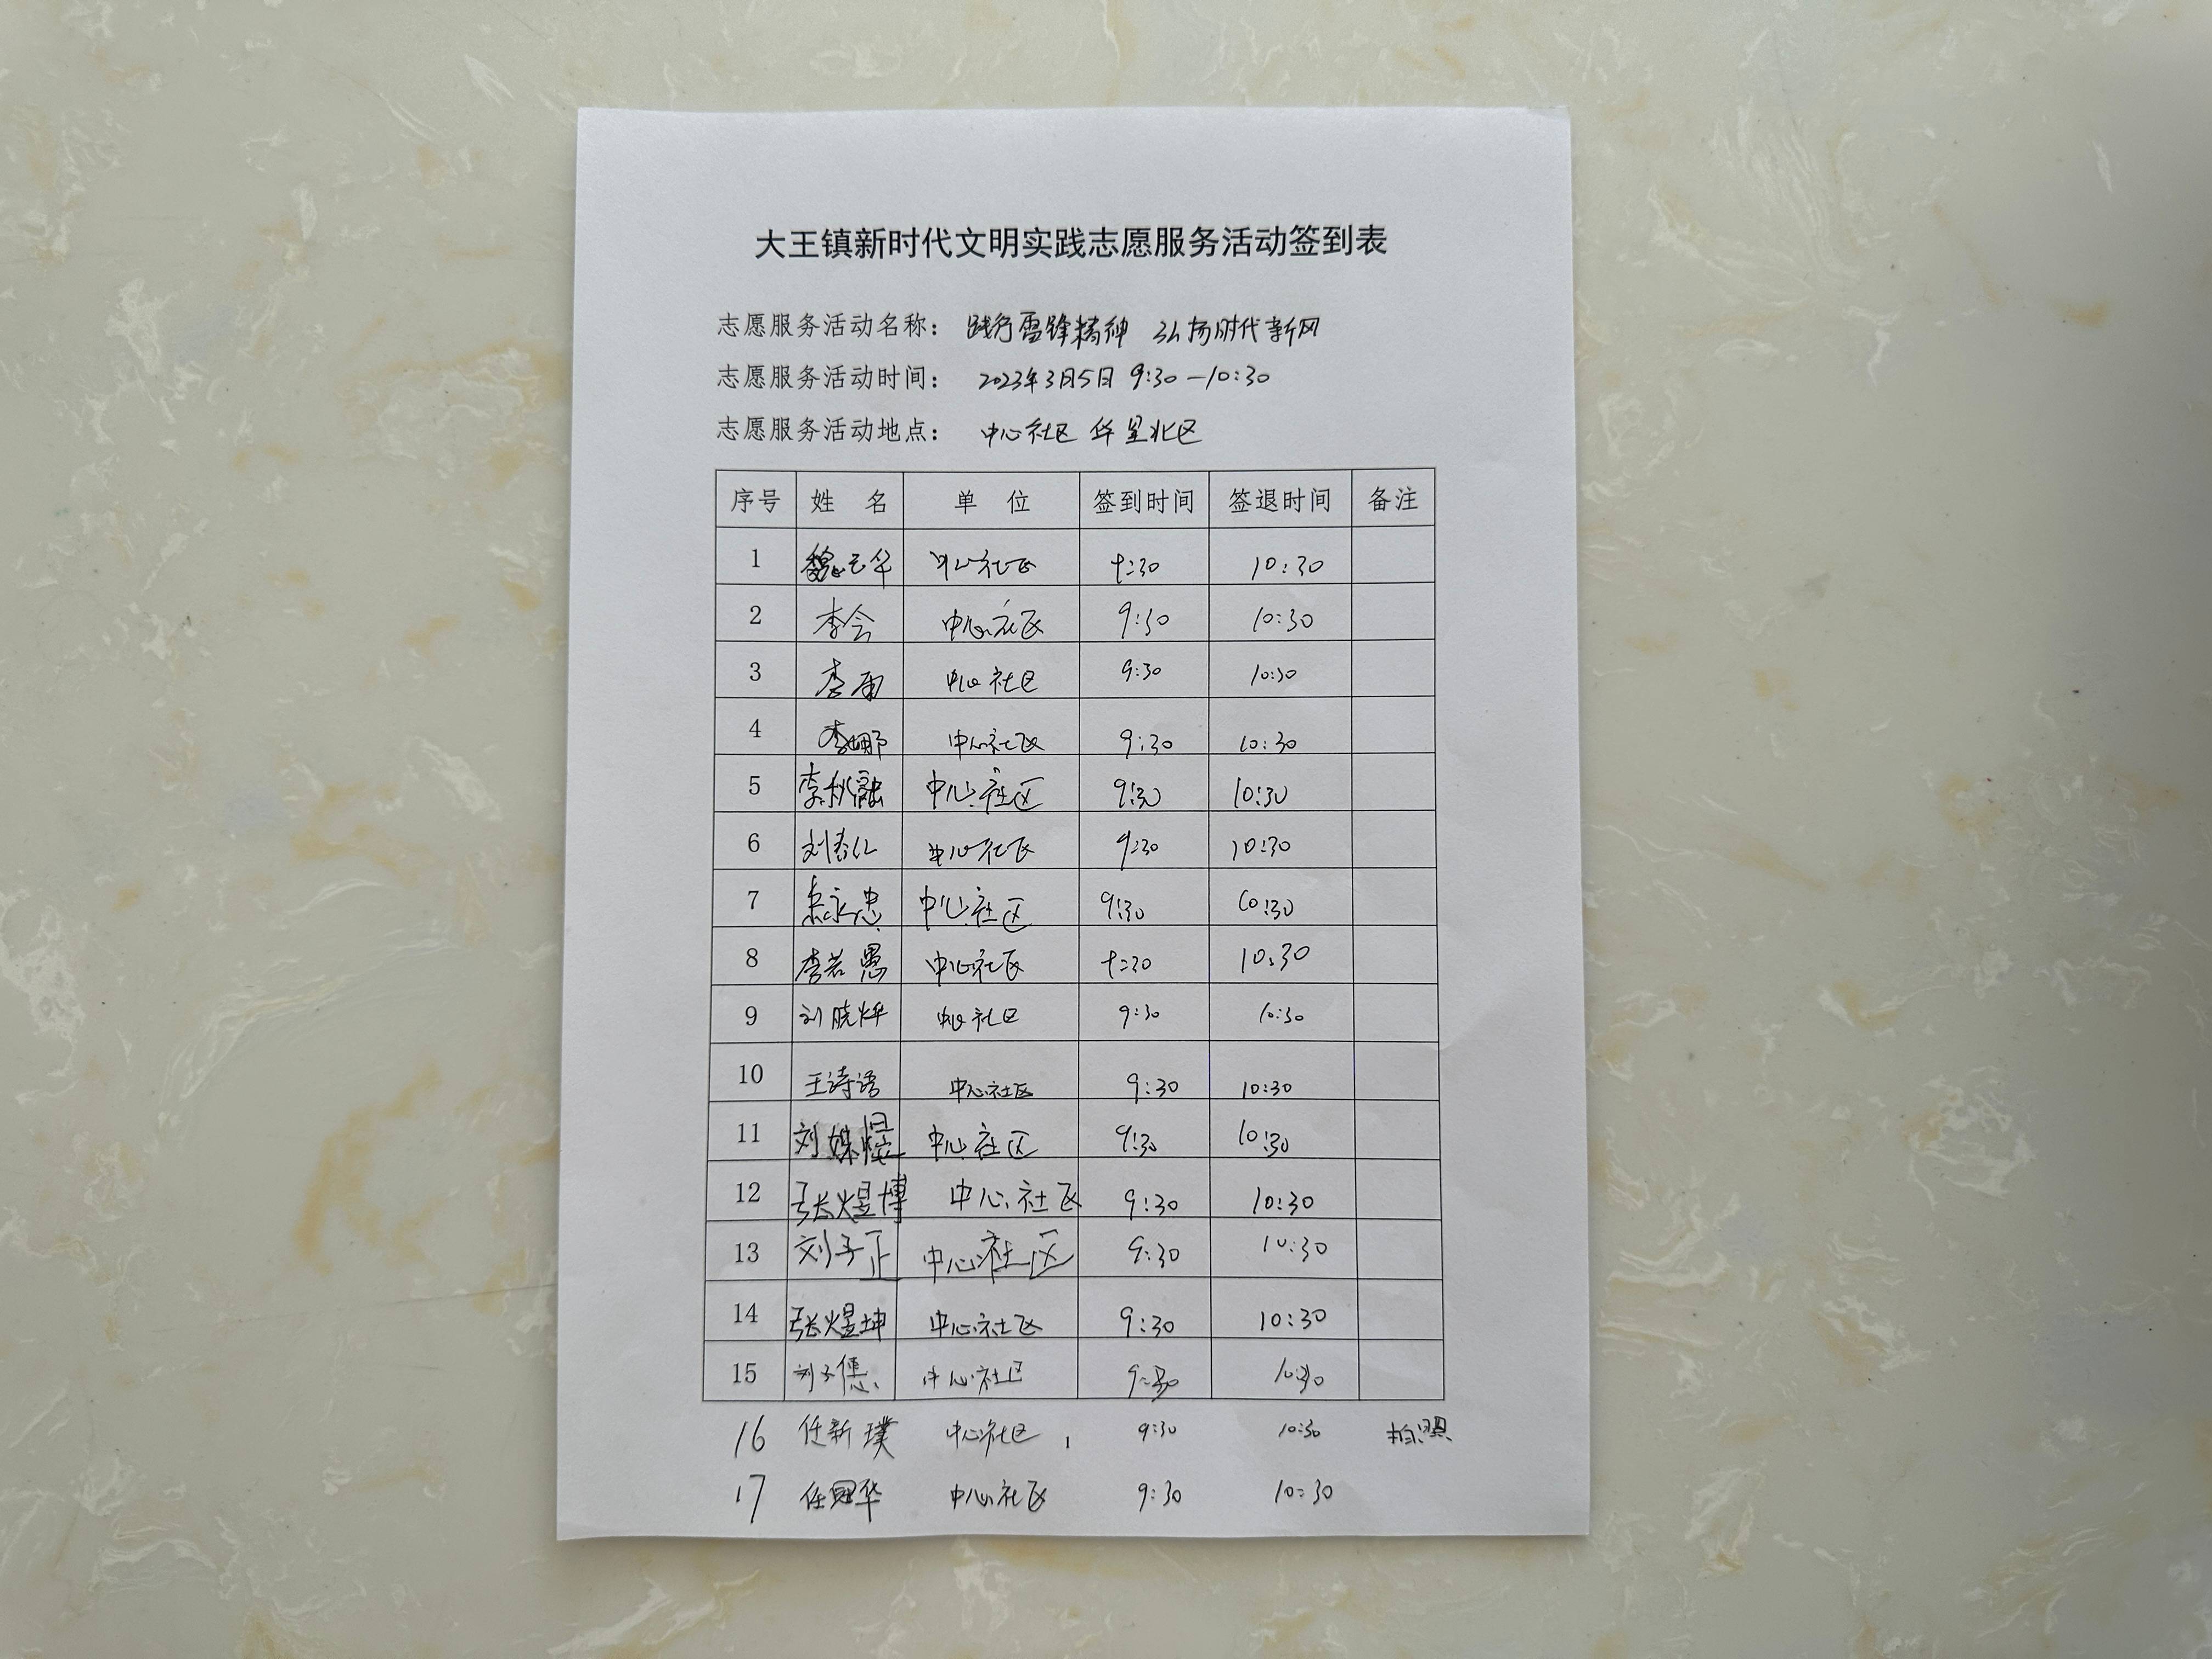 大王镇新时代文明实践志愿服务活动签到表
志愿服务活动名称： 践行雷锋精神 弘扬时代新风
志愿服务活动时间： 2023年3月5日 9:30—10:30
志愿服务活动地点： 中心社区 华星北区
序号 姓 名 单 位 签到时间 签退时间 备注
1 魏云华 中心社区 9:30 10:30
2 李会 中心社区 9:30 10:30
3 李雨 中心社区 9:30 10:30
4 李娜 中心社区 9:30 10:30
5 李秋融 中心社区 9:30 10:30
6 刘春仁 中心社区 9:30 10:30
7 永忠 中心社区 9:30 10:30
8 李若愚 中心社区 9:30 10:30
9 刘晓烨 中心社区 9:30 10:30
10 王诗语 中心社区 9:30 10:30
11 刘姝 中心社区 9:30 10:30
12 张煜博 中心社区 9:30 10:30
13 刘子正 中心社区 9:30 10:30
14 张煜坤 中心社区 9:30 10:30
15 刘子 中心社区 9:30 10:30
16 任新璞 中心社区 9:30 10:30
17 任冠华 中心社区 9:30 10:30